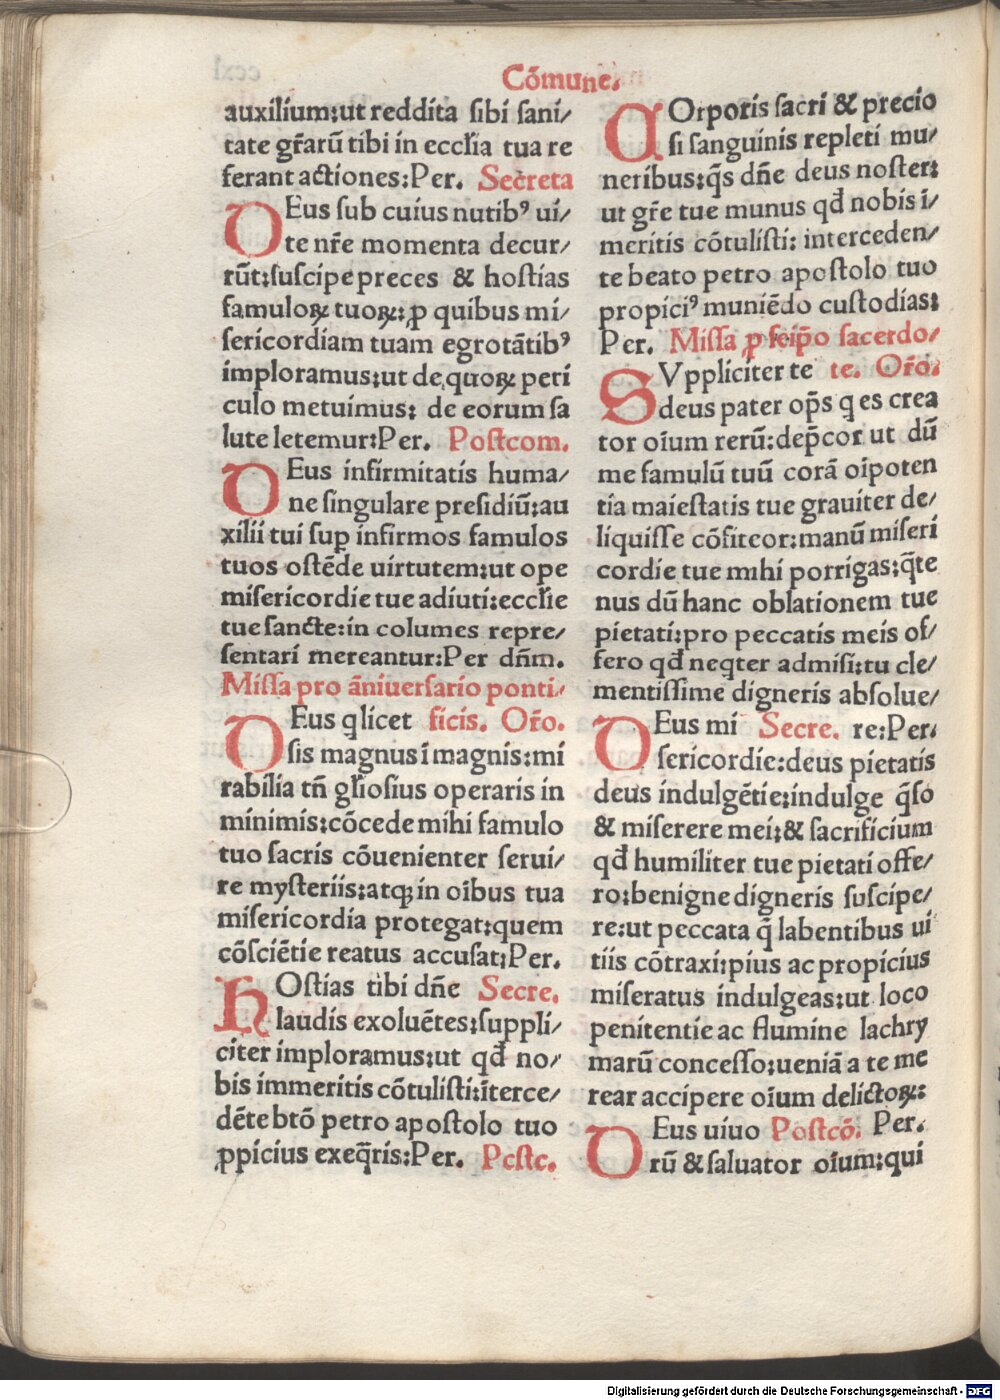 Cõmune.
auxilium:ut reddita sibi sani/
tate gr̃arũ tibi in eccl̃ia tua re
ferant actiones:Per. Secreta
DEus sub cuius nutibꝰ ui/
te nr̃e momenta decur/
rũt:suscipe preces & hostias
famuloꝝ tuoꝝ:ꝓ quibus mi/
sericordiam tuam egrotãtibꝰ
imploramus:ut de quoꝝ peri
culo metuimus: de eorum sa
lute letemur:Per. Postcom.
DEus infirmitatis huma/
ne singulare presidiũ:au
xilii tui suꝑ infirmos famulos
tuos ostẽde uirtutem:ut ope
misericordie tue adiuti:eccl̃ie
tue sancte:in columes repre/
sentari mereantur:Per dñm.
Missa pro ãniuersario ponti/
DEus q̃licet ficis. Or̃o.
sis magnus ĩ magnis:mi
rabilia tñ gl̃iosius operaris in
minimis:cõcede mihi famulo
tuo sacris cõuenienter serui/
re mysteriis:atqꝫ in oĩbus tua
misericordia protegat:quem
cõsciẽtie reatus accusat:Per.
HOstias tibi dñe Secre.
laudis exoluẽtes:suppli/
citer imploramus:ut qđ no/
bis immeritis cõtulisti:ĩterce/
dẽte btõ petro apostolo tuo
ꝓpicius exeq̃ris:Per. Pcstc.
COrporis sacri & precio
si sanguinis repleti mu/
neribus:q̃s dñe deus noster:
ut gr̃e tue munus qđ nobis ĩ/
meritis cõtulisti: interceden/
te beato petro apostolo tuo
propiciꝰ muniẽdo custodias:
Per. Missa ꝓ seip̃o sacerdo/
SVppliciter te te. Or̃o.
deus pater op̃s q es crea
tor oĩum rerũ:dep̃cor ut dũ
me famulũ tuũ corã oĩpoten
tia maiestatis tue grauiter de/
liquisse cõfiteor:manũ miseri
cordie tue mihi porrigas:q̃te
nus dũ hanc oblationem tue
pietati:pro peccatis meis of/
fero qđ neqter admisi:tu cle/
mentissime digneris absolue/
DEus mi Secre. re:Per.
sericordie:deus pietatis
deus indulgẽtie:indulge q̃so
& miserere mei:& sacrificium
qđ humiliter tue pietati offe/
ro:benigne digneris suscipe/
re:ut peccata q̃ labentibus ui
tiis cõtraxi:pius ac propicius
miseratus indulgeas:ut loco
penitentie ac flumine lachry
marũ concesso:ueniã a te me
rear accipere oĩum delictoꝝ:
DEus uiuo Postcõ. Per.
rũ & saluator oĩum:qui
Digitalisierung gefördert durch die Deutsche Forschungsgemeinschaft - DFG